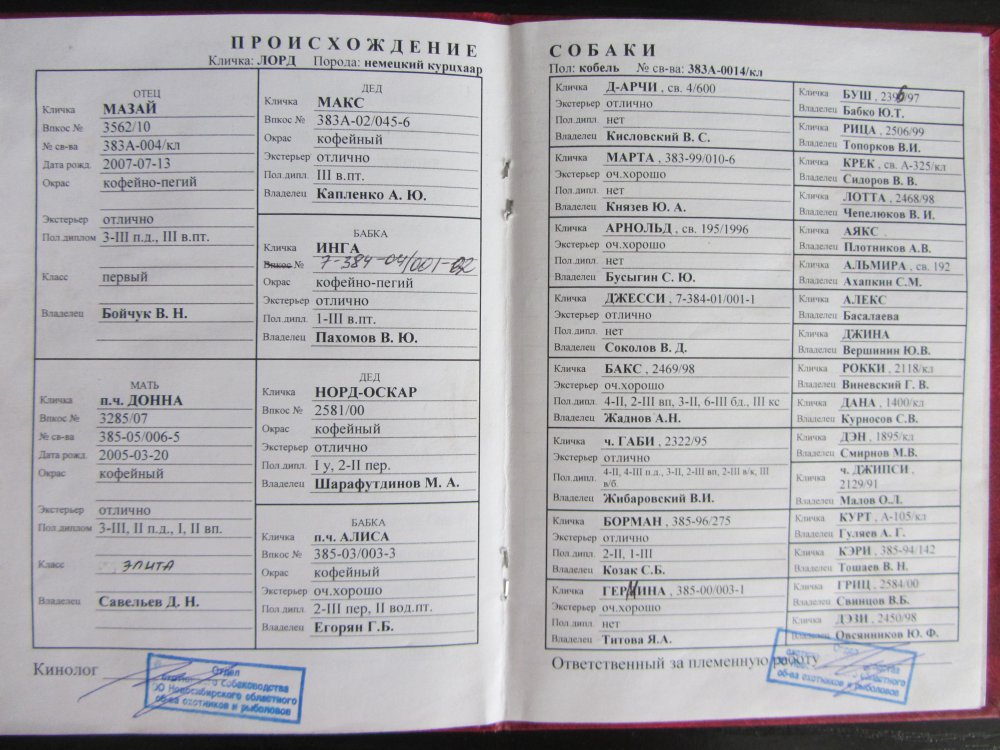 ПРОИСХОЖДЕНИЕ
Кличка: ЛОРД Порода: немецкий курцхаар
ОТЕЦ
Кличка МАЗАЙ
Впкос № 3562/10
№ св-ва 383А-004/кл
Дата рожд. 2007-07-13
Окрас кофейно-пегий
Экстерьер отлично
Пол.диплом 3-III п.д., III в.пт.
Класс первый
Владелец Бойчук В. Н.
МАТЬ
Кличка п.ч. ДОННА
Впкос № 3285/07
№ св-ва 385-05/006-5
Дата рожд. 2005-03-20
Окрас кофейный
Экстерьер отлично
Пол.диплом 3-III, II п.д., I, II вп.
Класс ЭЛИТА
Владелец Савельев Д. Н.
ДЕД
Кличка МАКС
Впкос № 383А-02/045-6
Окрас кофейный
Экстерьер отлично
Пол.дипл. III в.пт.
Владелец Капленко А. Ю.
БАБКА
Кличка ИНГА
Впкос № 7-384-04/001-02
Окрас кофейно-пегий
Экстерьер отлично
Пол.дипл. 1-III в.пт.
Владелец Пахомов В. Ю.
ДЕД
Кличка НОРД-ОСКАР
Впкос № 2581/00
Окрас кофейный
Экстерьер отлично
Пол.дипл. I у, 2-II пер.
Владелец Шарафутдинов М. А.
БАБКА
Кличка п.ч. АЛИСА
Впкос № 385-03/003-3
Окрас кофейный
Экстерьер оч.хорошо
Пол.дипл. 2-III пер, II вод.пт.
Владелец Егорян Г.Б.
Кинолог
Отдел
охотничьего собаководства
ОО Новосибирского областного
об-ва охотников и рыболовов
СОБАКИ
Пол: кобель № св-ва: 383А-0014/кл
Кличка Д-АРЧИ , св. 4/600
Экстерьер отлично
Пол.дипл. нет
Владелец Кисловский В. С.
Кличка МАРТА , 383-99/010-6
Экстерьер оч.хорошо
Пол.дипл. нет
Владелец Князев Ю. А.
Кличка АРНОЛЬД , св. 195/1996
Экстерьер оч.хорошо
Пол.дипл. нет
Владелец Бусыгин С. Ю.
Кличка ДЖЕССИ , 7-384-01/001-1
Экстерьер отлично
Пол.дипл. нет
Владелец Соколов В. Д.
Кличка БАКС , 2469/98
Экстерьер оч.хорошо
Пол.дипл. 4-II, 2-III вп, 3-II, 6-III бд., III кс
Владелец Жаднов А.Н.
Кличка ч. ГАБИ , 2322/95
Экстерьер отлично
Пол.дипл. 4-II, 4-III п.д., 3-II, 2-III вп, 2-III в/к, III
в/б.
Владелец Жибаровский В.И.
Кличка БОРМАН , 385-96/275
Экстерьер отлично
Пол.дипл. 2-II, 1-III
Владелец Козак С.Б.
Кличка ГЕРМИНА , 385-00/003-1
Экстерьер оч.хорошо
Пол.дипл. нет
Владелец Титова Я.А.
Кличка БУШ , 2396/97
Владелец Бабко Ю.Т.
Кличка РИЦА , 2506/99
Владелец Топорков В.И.
Кличка КРЕК , св. А-325/кл
Владелец Сидоров В. В.
Кличка ЛОТТА , 2468/98
Владелец Чепелюков В. И.
Кличка АЯКС
Владелец Плотников А.В.
Кличка АЛЬМИРА , св. 192
Владелец Ахапкин С.М.
Кличка АЛЕКС
Владелец Басалаева
Кличка ДЖИНА
Владелец Вершинин Ю.В.
Кличка РОККИ , 2118/кл
Владелец Виневский Г. В.
Кличка ДАНА , 1400/кл
Владелец Курносов С.В.
Кличка ДЭН , 1895/кл
Владелец Смирнов М.В.
Кличка ч. ДЖИПСИ ,
2129/91
Владелец Малов О.Л.
Кличка КУРТ , А-105/кл
Владелец Гуляев А. Г.
Кличка КЭРИ , 385-94/142
Владелец Тошаев В. Н.
Кличка ГРИЦ , 2584/00
Владелец Свинцов В.Б.
Кличка ДЭЗИ , 2450/98
Владелец Овсянников Ю. Ф.
Ответственный за племенную работу
Отдел
областного
об-ва охотников и рыболовов